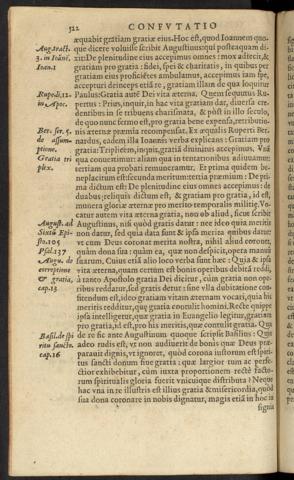 522 CONFVTATIO
æquabit gratiam gratiæ eius. Hoc est, quod Ioannem quo-
Aug. tract. que dicere voluisse scribit Augustinus: qui posteaquam di-
3. in Ioãne. xit: De plenitudine eius accepimus omnes: mox adiecit, &
Ioan. 1 gratiam pro gratia: fides, spei & charitatis, in quibus per
gratiam eius proficietes ambulamus, accepimus iam spe,
accepturi deinceps etiã re, gratiam illam de qua loquitur
Rup. Paulus: Gratia autē Dei vita æterna. Quem sequutus Ru-
in Apoc. pertus: Prius, inquit, in hac vita gratiam dat, diuersa cre-
dentibus in se tribuens charismata, & post in illo seculo,
de quo nunc sermo est, pro gratia bene expensa, retributio-
Ber. ser. 5. nis æternæ præmia recompensat. Ex æqualis Ruperti Ber-
de assum- nardus, eadem illa Ioannis verba explicans: Gratiam pro
ptione. gratia: Triplicem, inquit, gratiã diuinitus accepimus. Vnã
Gratia tri qua conuertimur: aliam qua in tentationibus adiuuamur:
plex. tertiam qua probati remuneramur. Et prima quidem be-
neplacitum est: secunda meritum: tertia præmium: De pri-
ma dictum est: De plenitudine eius omnes accepimus: de
duabus reliquis dictum est, & gratiam pro gratia, id est,
munera gloriæ æternæ pro merito temporalis militiæ. Vo-
catur autem vita æterna gratia, non ob aliud, sicut scribit
August. ad Augustinus, nisi quòd gratis datur: nec ideo quia meritis
Sixtũ Epi- non datur, sed quia data sunt & ipsa merita quibus datur
sto. 105 vt cum Deus coronat merita nostra, nihil aliud coronet,
Psal. 137 quàm dona sua: quàm ea, quæ non despicit, opera manuũ
Augu. de suarum. Cuius etiã alio loco verba sunt hæc: Quia & ipsa
correptione vita æterna, quam certum est bonis operibus debitã reddi,
& gratia, à tanto Apostolo gratia Dei dicitur, cùm gratia non ope-
cap. 13 ribus reddatur, sed gratis detur: sine vlla dubitatione con-
fitendum est, ideo gratiam vitam æternam vocari, quia his
meritis redditur, quę gratia contulit homini. Rectè quippe
ipsa intelligitur, quæ gratia in Euangelio legitur, gratiam
pro gratia, id est, pro his meritis, quæ contulit gratia. Qua
Basil. de spi de re sic ante Augustinum quoque scripsit Basilius: Quis
ritu sancto. adeo rudis est, vt non audiuerit de bonis quæ Deus præ-
cap. 16 parauit dignis, vt ignoret, quòd corona iustorum est spiri-
tus sancti donum siue gratia: quæ largior tum ac perfe-
ctior exhibebitur, cùm iuxta proportionem rectè facto-
rum spiritualis gloria fuerit vnicuique distributa? Neque
hac vna in re illustris est illius gratia & misericordia, quòd
sua dona coronare in nobis dignatur, magis etiã in hoc in
signis